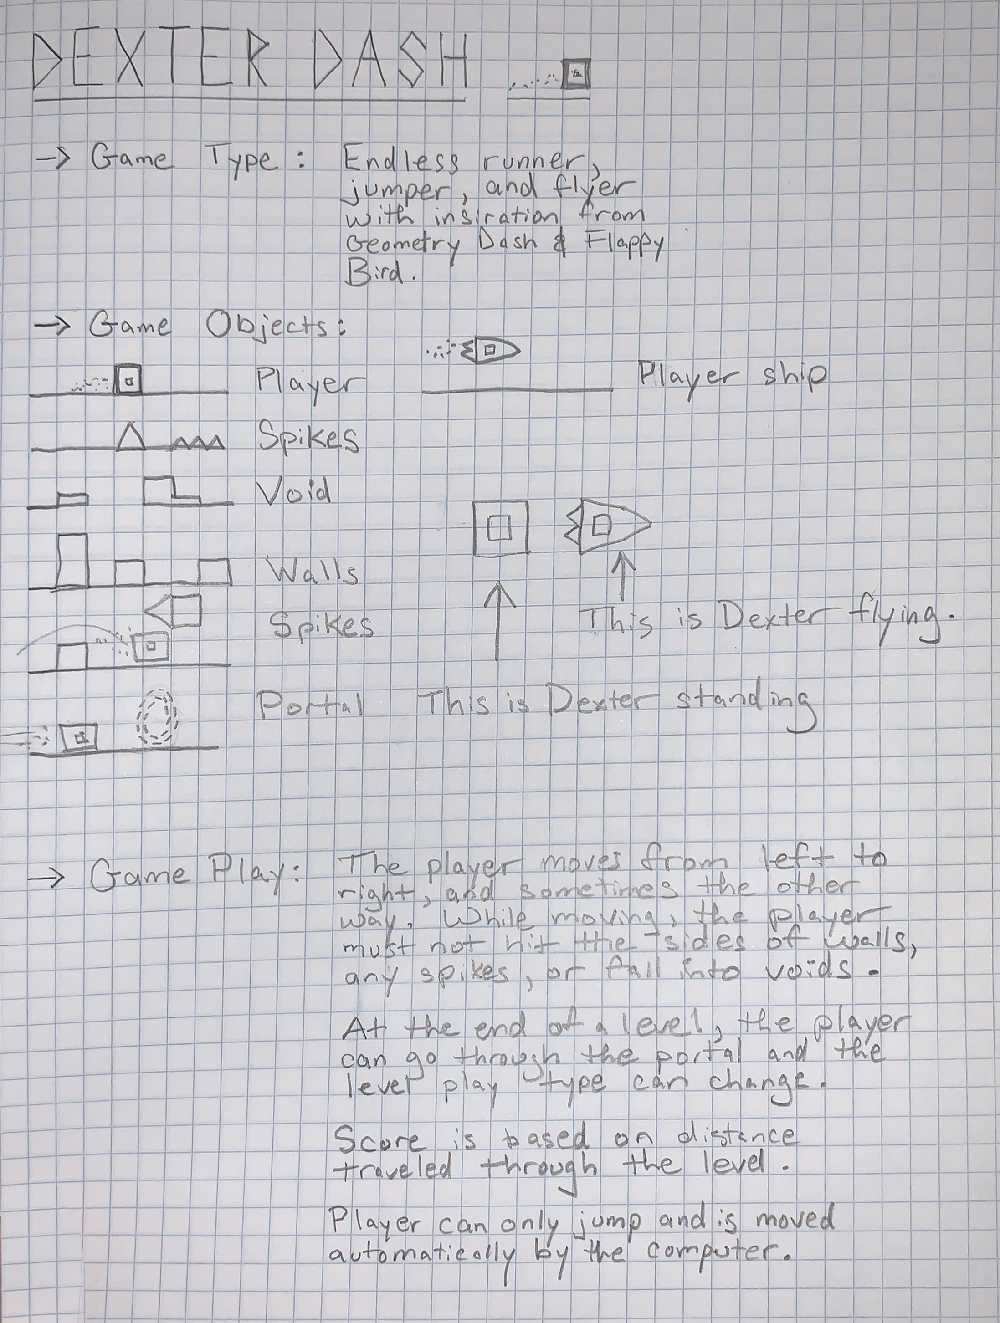 DEXTER DASH
→ Game Type: Endless runner,
jumper, and flyer
with insiration from
Geometry Dash & Flappy
Bird.
→ Game Objects:
Player
Player ship
Spikes
Void
Walls
Spikes
This is Dexter flying.
Portal
This is Dexter standing
→ Game Play: The player moves from left to
right, and sometimes the other
way. While moving, the player
must not hit the sides of walls,
any spikes, or fall into voids.
At the end of a level, the player
can go through the portal and the
level play type can change.
Score is based on distance
traveled through the level.
Player can only jump and is moved
automatically by the computer.